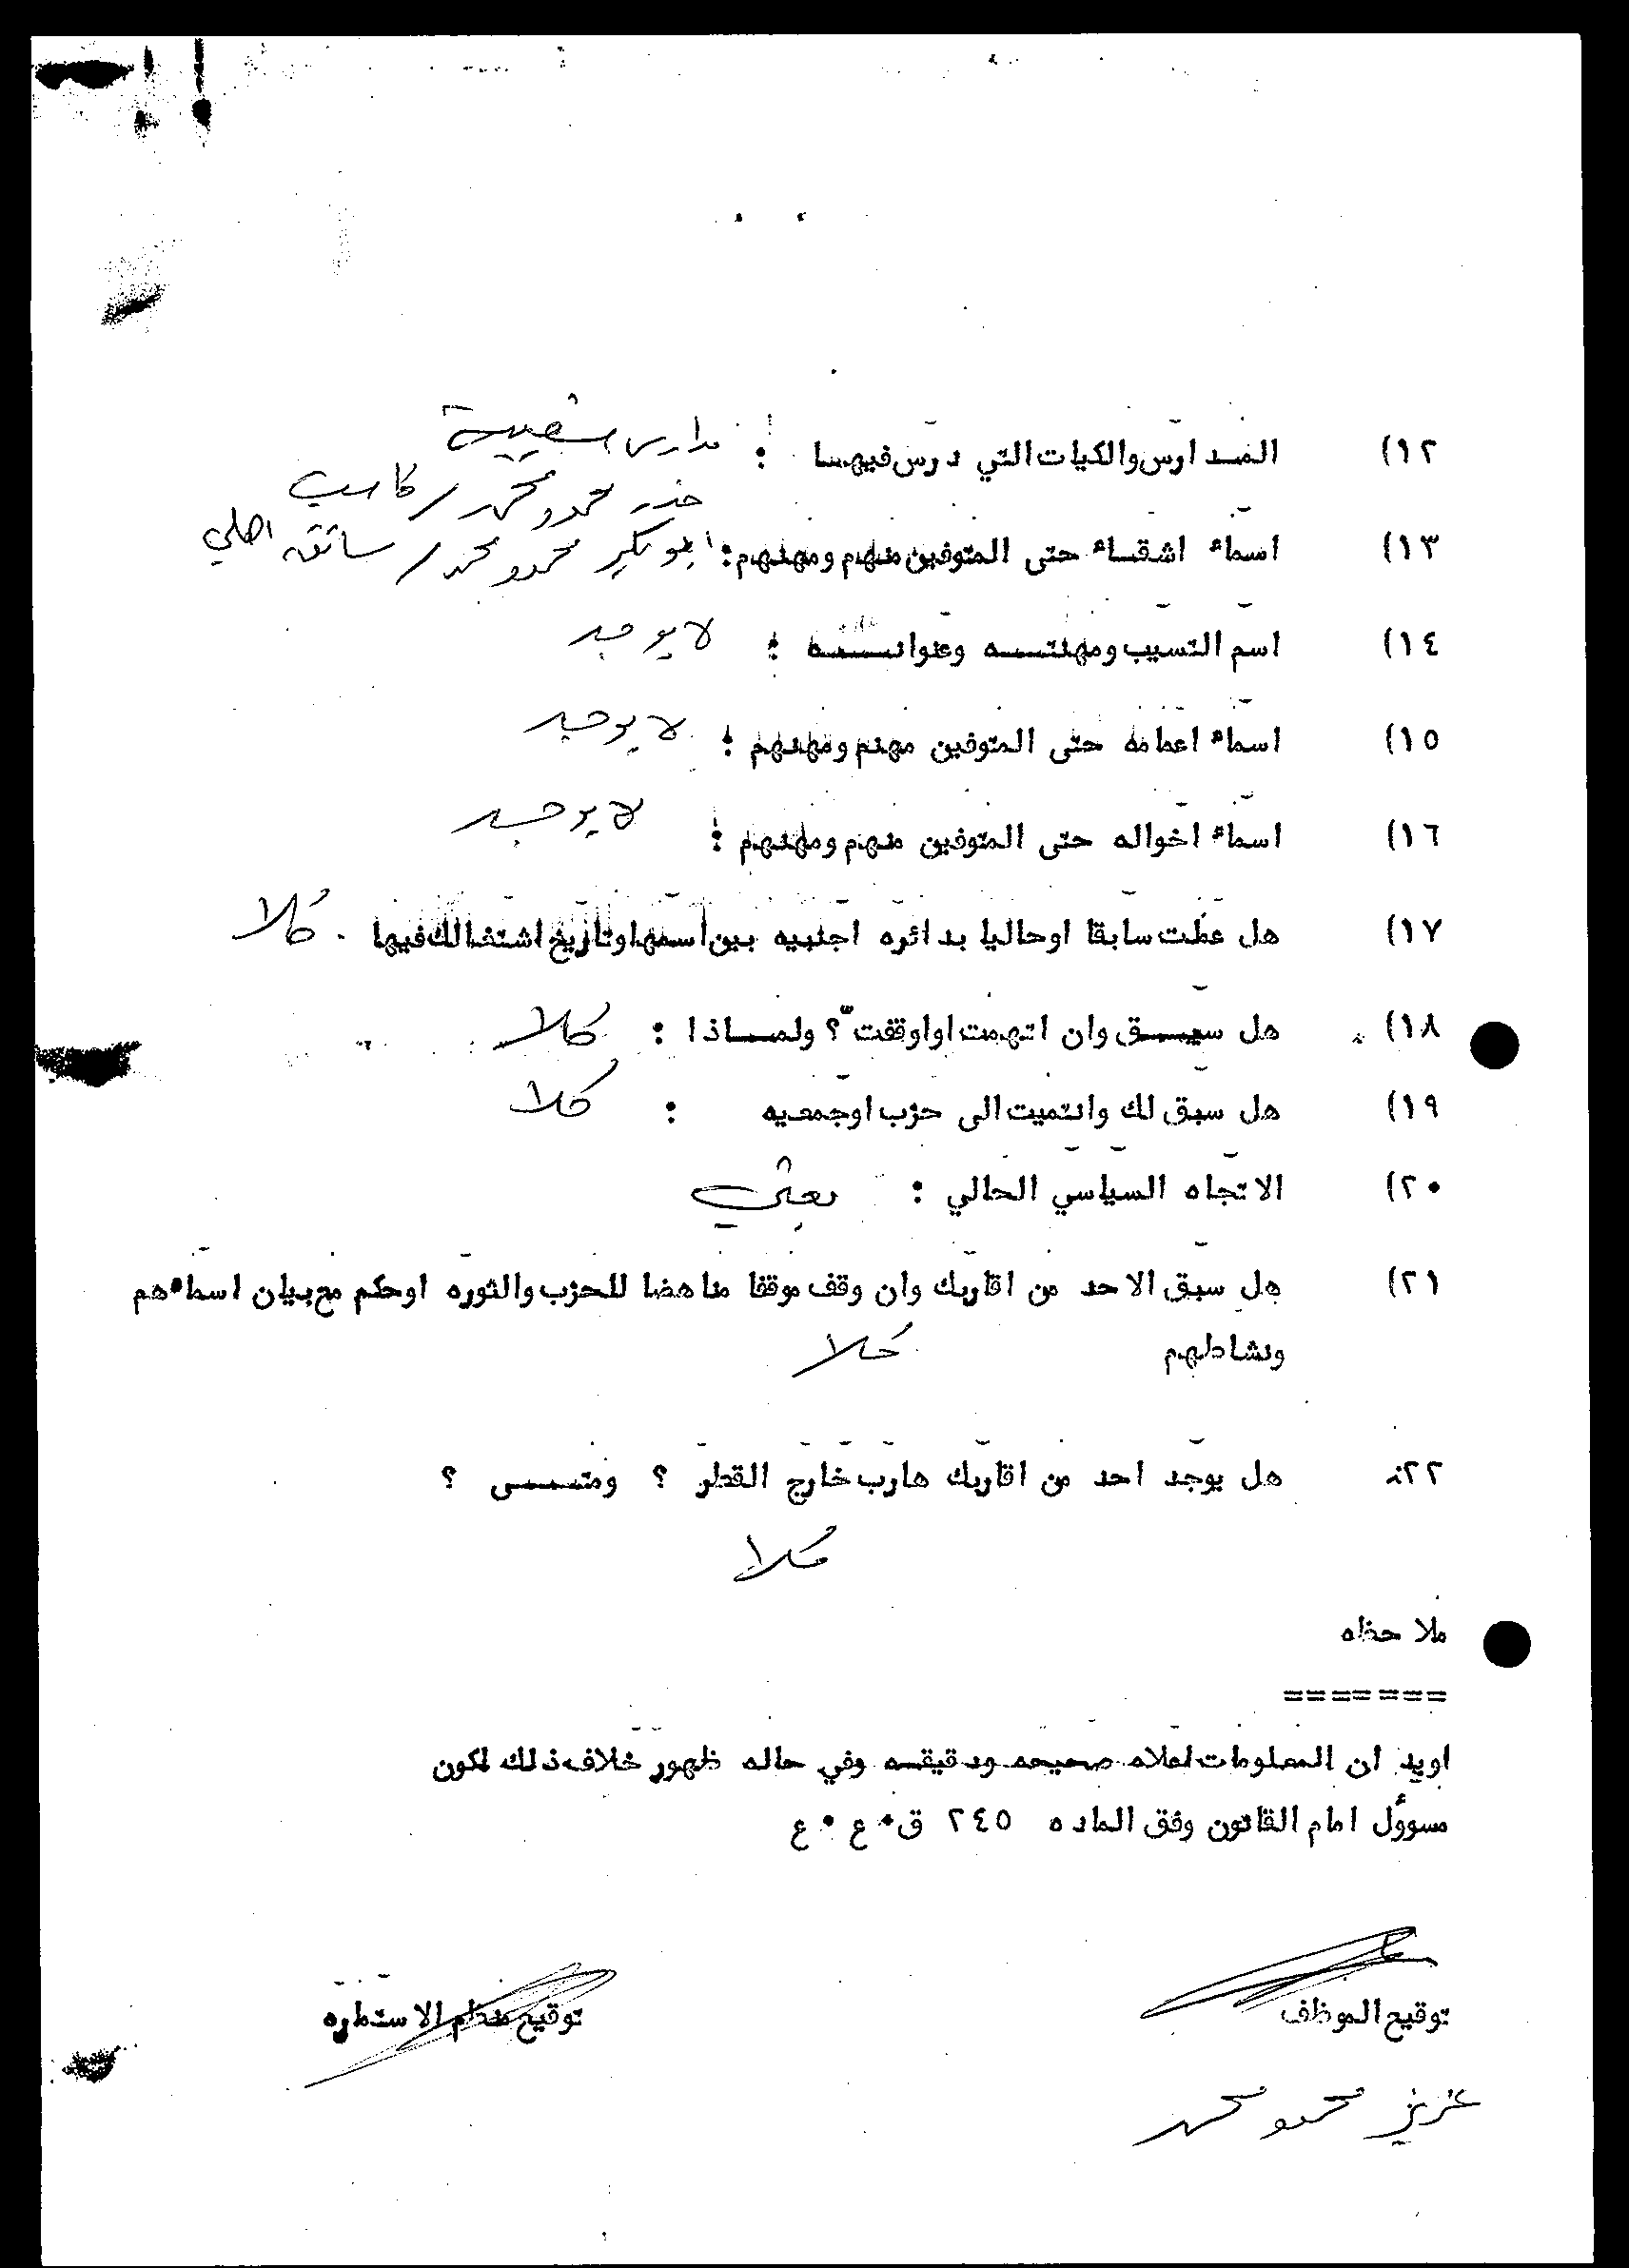 ١٢) المدارس والكيات التي درس فيها : مدارس شعبية
خدر محمود محمد / كاسب
١٣) اسماء اشقاء حتى المتوفين منهم ومهنهم : ابو بكر محمود محمد / سائق اهلي
١٤) اسم النسيب ومهنته وعنوانه : لا يوجد
١٥) اسماء اعمامه حتى المتوفين مهنم ومهنهم : لا يوجد
١٦) اسماء اخواله حتى المتوفين منهم ومهنهم : لا يوجد
١٧) هل عملت سابقا اوحاليا بدائره اجنبيه بين اسمها وتاريخ اشتغالك فيها . كلا
١٨) هل سبق وان اتهمت اواوقفت ؟ ولماذا : كلا
١٩) هل سبق لك وانتميت الى حزب اوجمعيه : كلا
٢٠) الاتجاه السياسي الحالي : بعثي
٢١) هل سبق الاحد من اقاربك وان وقف موقفا مناهضا للحزب والثوره اوحكم مع بيان اسماءهم
ونشاطهم كلا
٢٢) هل يوجد احد من اقاربك هارب خارج القطر ؟ ومتى ؟
كلا
ملاحظه
=======
اويد ان المعلومات اعلاه صحيحه ودقيقه وفي حاله ظهور خلاف ذلك اكون
مسوؤل امام القانون وفق الماده ٢٤٥ ق٠ع٠ع
توقيع الموظف توقيع منظم الاستماره
عزيز محمود محمد